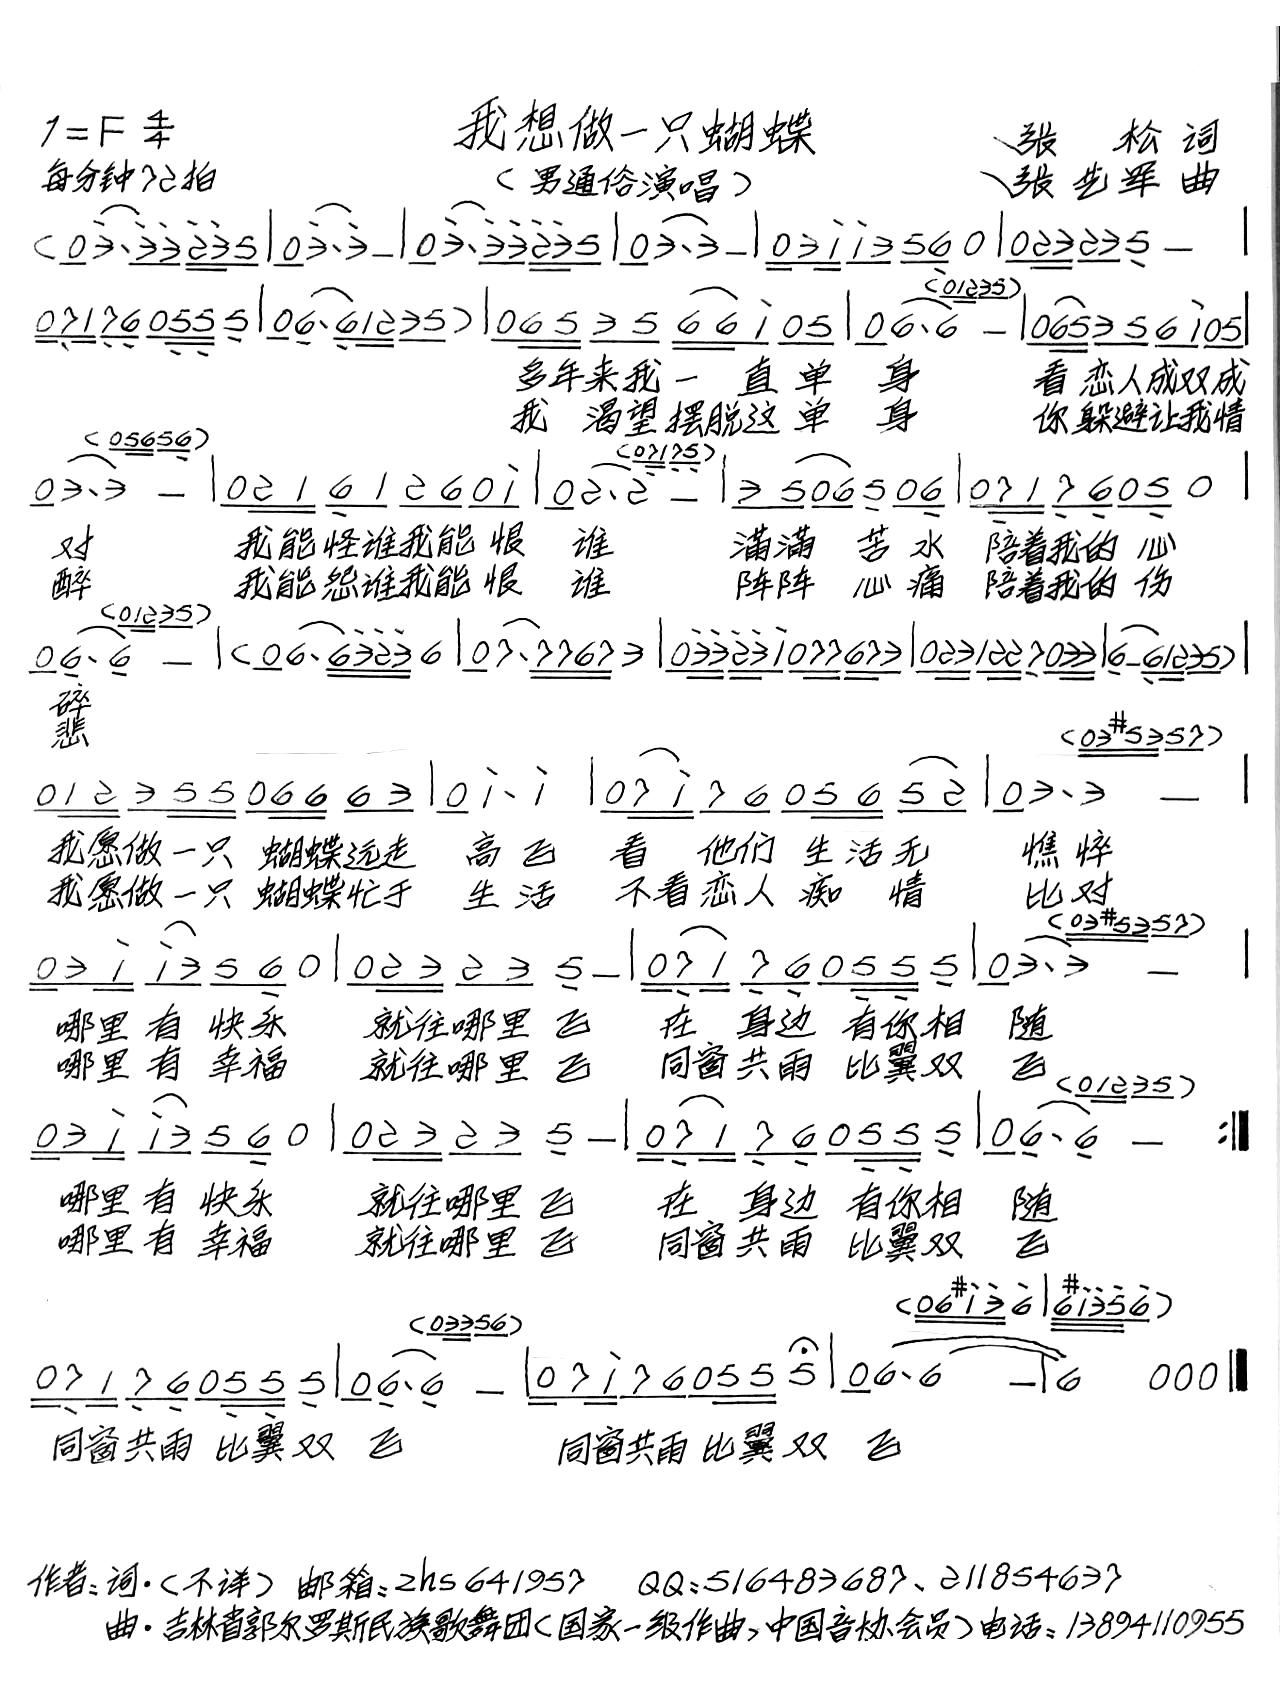 1=F 4/4 我想做一只蝴蝶 张 松 词
每分钟72拍 (男通俗演唱) 张先军 曲
(03·33235|03·3-|03·33235|03·3-|031i3560|023235-|
(01235)
071760555|06·61235)|0653566105|06·6-|065356105|
多年来我一 直单 身 看恋人成双成
我 渴望摆脱这单 身 你躲避让我情
(05656) (07175)
03·3-|021612601|02·2-|3506506|07176050|
对 我能怪谁我能恨 谁 满满 苦水 陪着我的心
醉 我能怨谁我能恨 谁 阵阵 心痛 陪着我的伤
(01235)
06·6-|(06·63236|07·77673|033231077673|0231227033|6-61235)|
碎
悲
(03#5357)
012355066663|01·1|0717605652|03·3-|
我愿做一只 蝴蝶远走 高飞 看 他们 生活无 憔悴
我愿做一只 蝴蝶忙于 生活 不看恋人 痴 情 比对
(03#5357)
031i3560|023235-|071760555|03·3-|
哪里有 快乐 就往哪里飞 在 身边 有你相 随
哪里有 幸福 就往哪里飞 同窗共雨 比翼双 飞
(01235)
031i3560|023235-|071760555|06·6-:|
哪里有 快乐 就往哪里飞 在 身边 有你相 随
哪里有 幸福 就往哪里飞 同窗共雨 比翼双 飞
(03356) (06#136|6#1356)
071760555|06·6-|071760555|06·6-|6 000|
同窗共雨 比翼双 飞 同窗共雨 比翼双 飞
作者:词·(不详) 邮箱:zhs641957 QQ:516483687、211854637
曲·吉林省郭尔罗斯民族歌舞团(国家一级作曲,中国音协会员)电话:13894110955